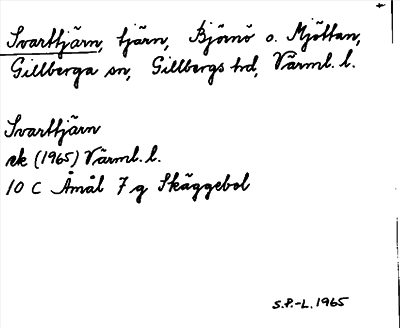 Svarttjärn, tjärn, Björnö o. Mjöttan,
Gillberga sn, Gillbergs hd, Värml. l.
Svarttjärn
ek (1965) Värml. l.
10 C Åmål 7 g Skäggebol
S.P.-L. 1965